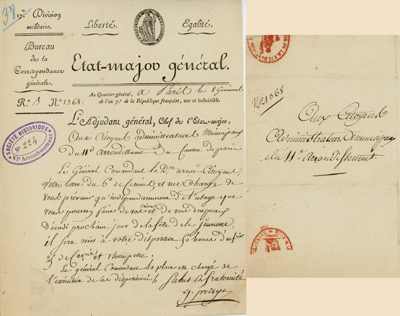 17e Division
militaire.
Liberté
Egalité
Bureau
de la
Correspondance
générale.
Etat-major général.
Au Quartier général, à Paris le 8 Germinal
de l'an 7e de la République française, une et indivisible.
Rre B No 1968.
L'Adjudant général, Chef de l'Etat-major.
Aux Citoyens administrateurs Municipaux
du 11e Arrondissement du Canton de paris
SOCIÉTÉ HISTORIQUE
No 224
VIe Arrondissement
Le Général Commandant la 17e Citoyens
Votre lettre du 6 de germinal et me charge de
vous prévenir qu'indépendamment de l'usage que
vous pourrez faire de
décadi prochain, jour de la fête de la jeunesse,
il sera mis à votre disposition 50 hommes d'infrie
25 de Cavrie et
Le général Commandant la place est chargé de
l'exécution de ces dispositions. Salut & fraternité
No 1968
Aux Citoyens
Administrateurs Municipaux
du 11e Arrondissement